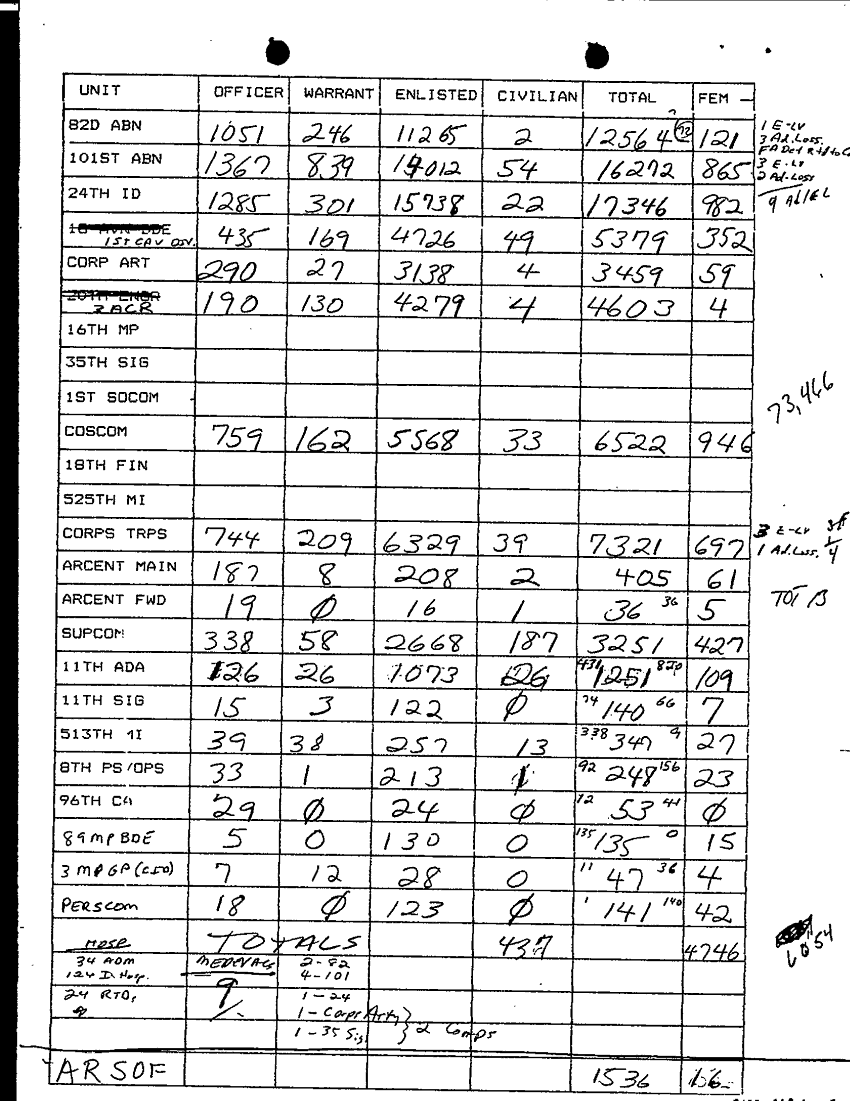 UNIT OFFICER WARRANT ENLISTED CIVILIAN TOTAL FEM -
82D ABN 1051 246 11265 2 12564 121 1 E-LV
3 Ad. Loss.
101ST ABN 1367 839 14012 54 16272 865 3 E-LV
2 Ad. Loss
24TH ID 1285 301 15738 22 17346 982
18 AVN BDE
1ST CAV DIV. 435 169 4726 49 5379 352
CORP ART 290 27 3138 4 3459 59
20TH ENGR
3 ACR 190 130 4279 4 4603 4
16TH MP
35TH SIG
1ST SOCOM 73,466
COSCOM 759 162 5568 33 6522 946
18TH FIN
525TH MI
CORPS TRPS 744 209 6329 39 7321 697 3 E-LV
1 Ad. Loss. 4
ARCENT MAIN 187 8 208 2 405 61
ARCENT FWD 19 Ø 16 1 36 36 5
SUPCOM 338 58 2668 187 3251 427
11TH ADA 126 26 1073 26 431 1251 820 109
11TH SIG 15 3 122 Ø 74 140 66 7
513TH MI 39 38 257 13 338 347 9 27
8TH PS/OPS 33 1 213 1 92 248 156 23
96TH CA 29 Ø 24 Ø 12 53 41 Ø
89 MP BDE 5 0 130 0 135 135 0 15
3 MP GP (CID) 7 12 28 0 11 47 36 4
PERSCOM 18 Ø 123 Ø 1 141 140 42
HOSP TOTALS 437 4746 6054
34 ADM MEDEVACS 2-82
124 In Hosp. 4-101
24 RTD, 9 1-24
1-Corps Arty
1-35 Sig 2 Comps
ARSOF 1536 156